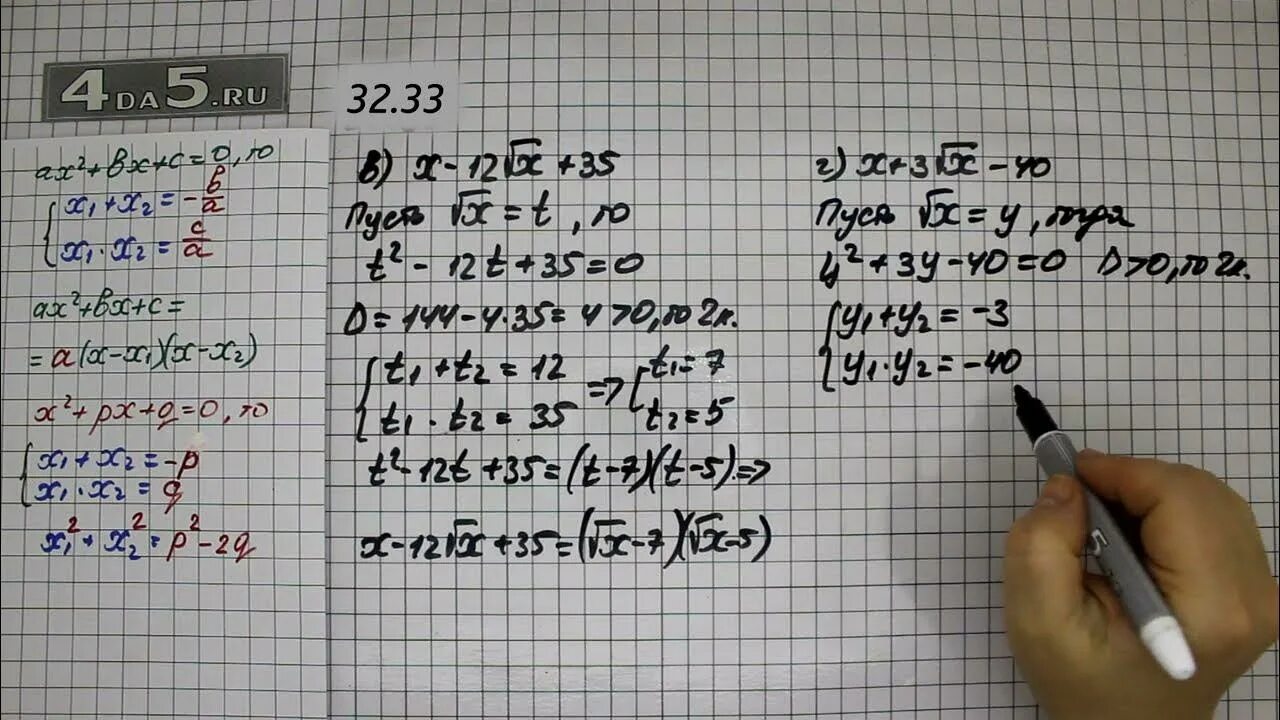 4DA5.RU
32.33
ax²+bx+c=0, то
{x₁+x₂=-b/a
{x₁·x₂=c/a
ax²+bx+c=
=a(x-x₁)(x-x₂)
x²+px+q=0, то
{x₁+x₂=-p
{x₁·x₂=q
x₁²+x₂²=p²-2q
в) x-12√x+35
Пусть √x=t, то
t²-12t+35=0
D=144-4·35=4>0, то 2к.
{t₁+t₂=12 => [t₁=7
{t₁·t₂=35 [t₂=5
t²-12t+35=(t-7)(t-5)=>
x-12√x+35=(√x-7)(√x-5)
г) x+3√x-40
Пусть √x=y, тогда
y²+3y-40=0 D>0, то 2к.
{y₁+y₂=-3
{y₁·y₂=-40
5